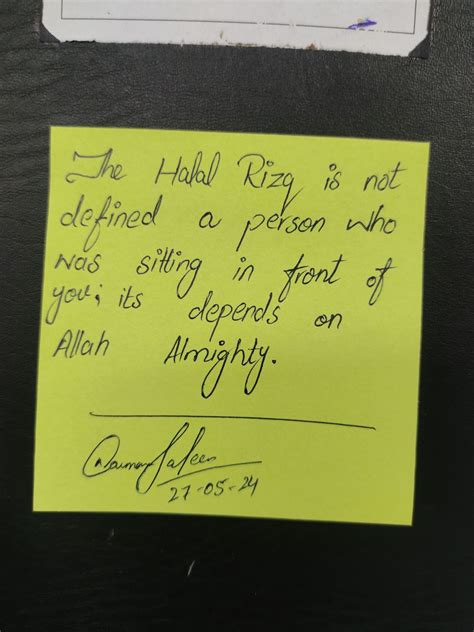 The Halal Rizq is not
defined a person who
was sitting in front of
you; its depends on
Allah Almighty.
27-05-24